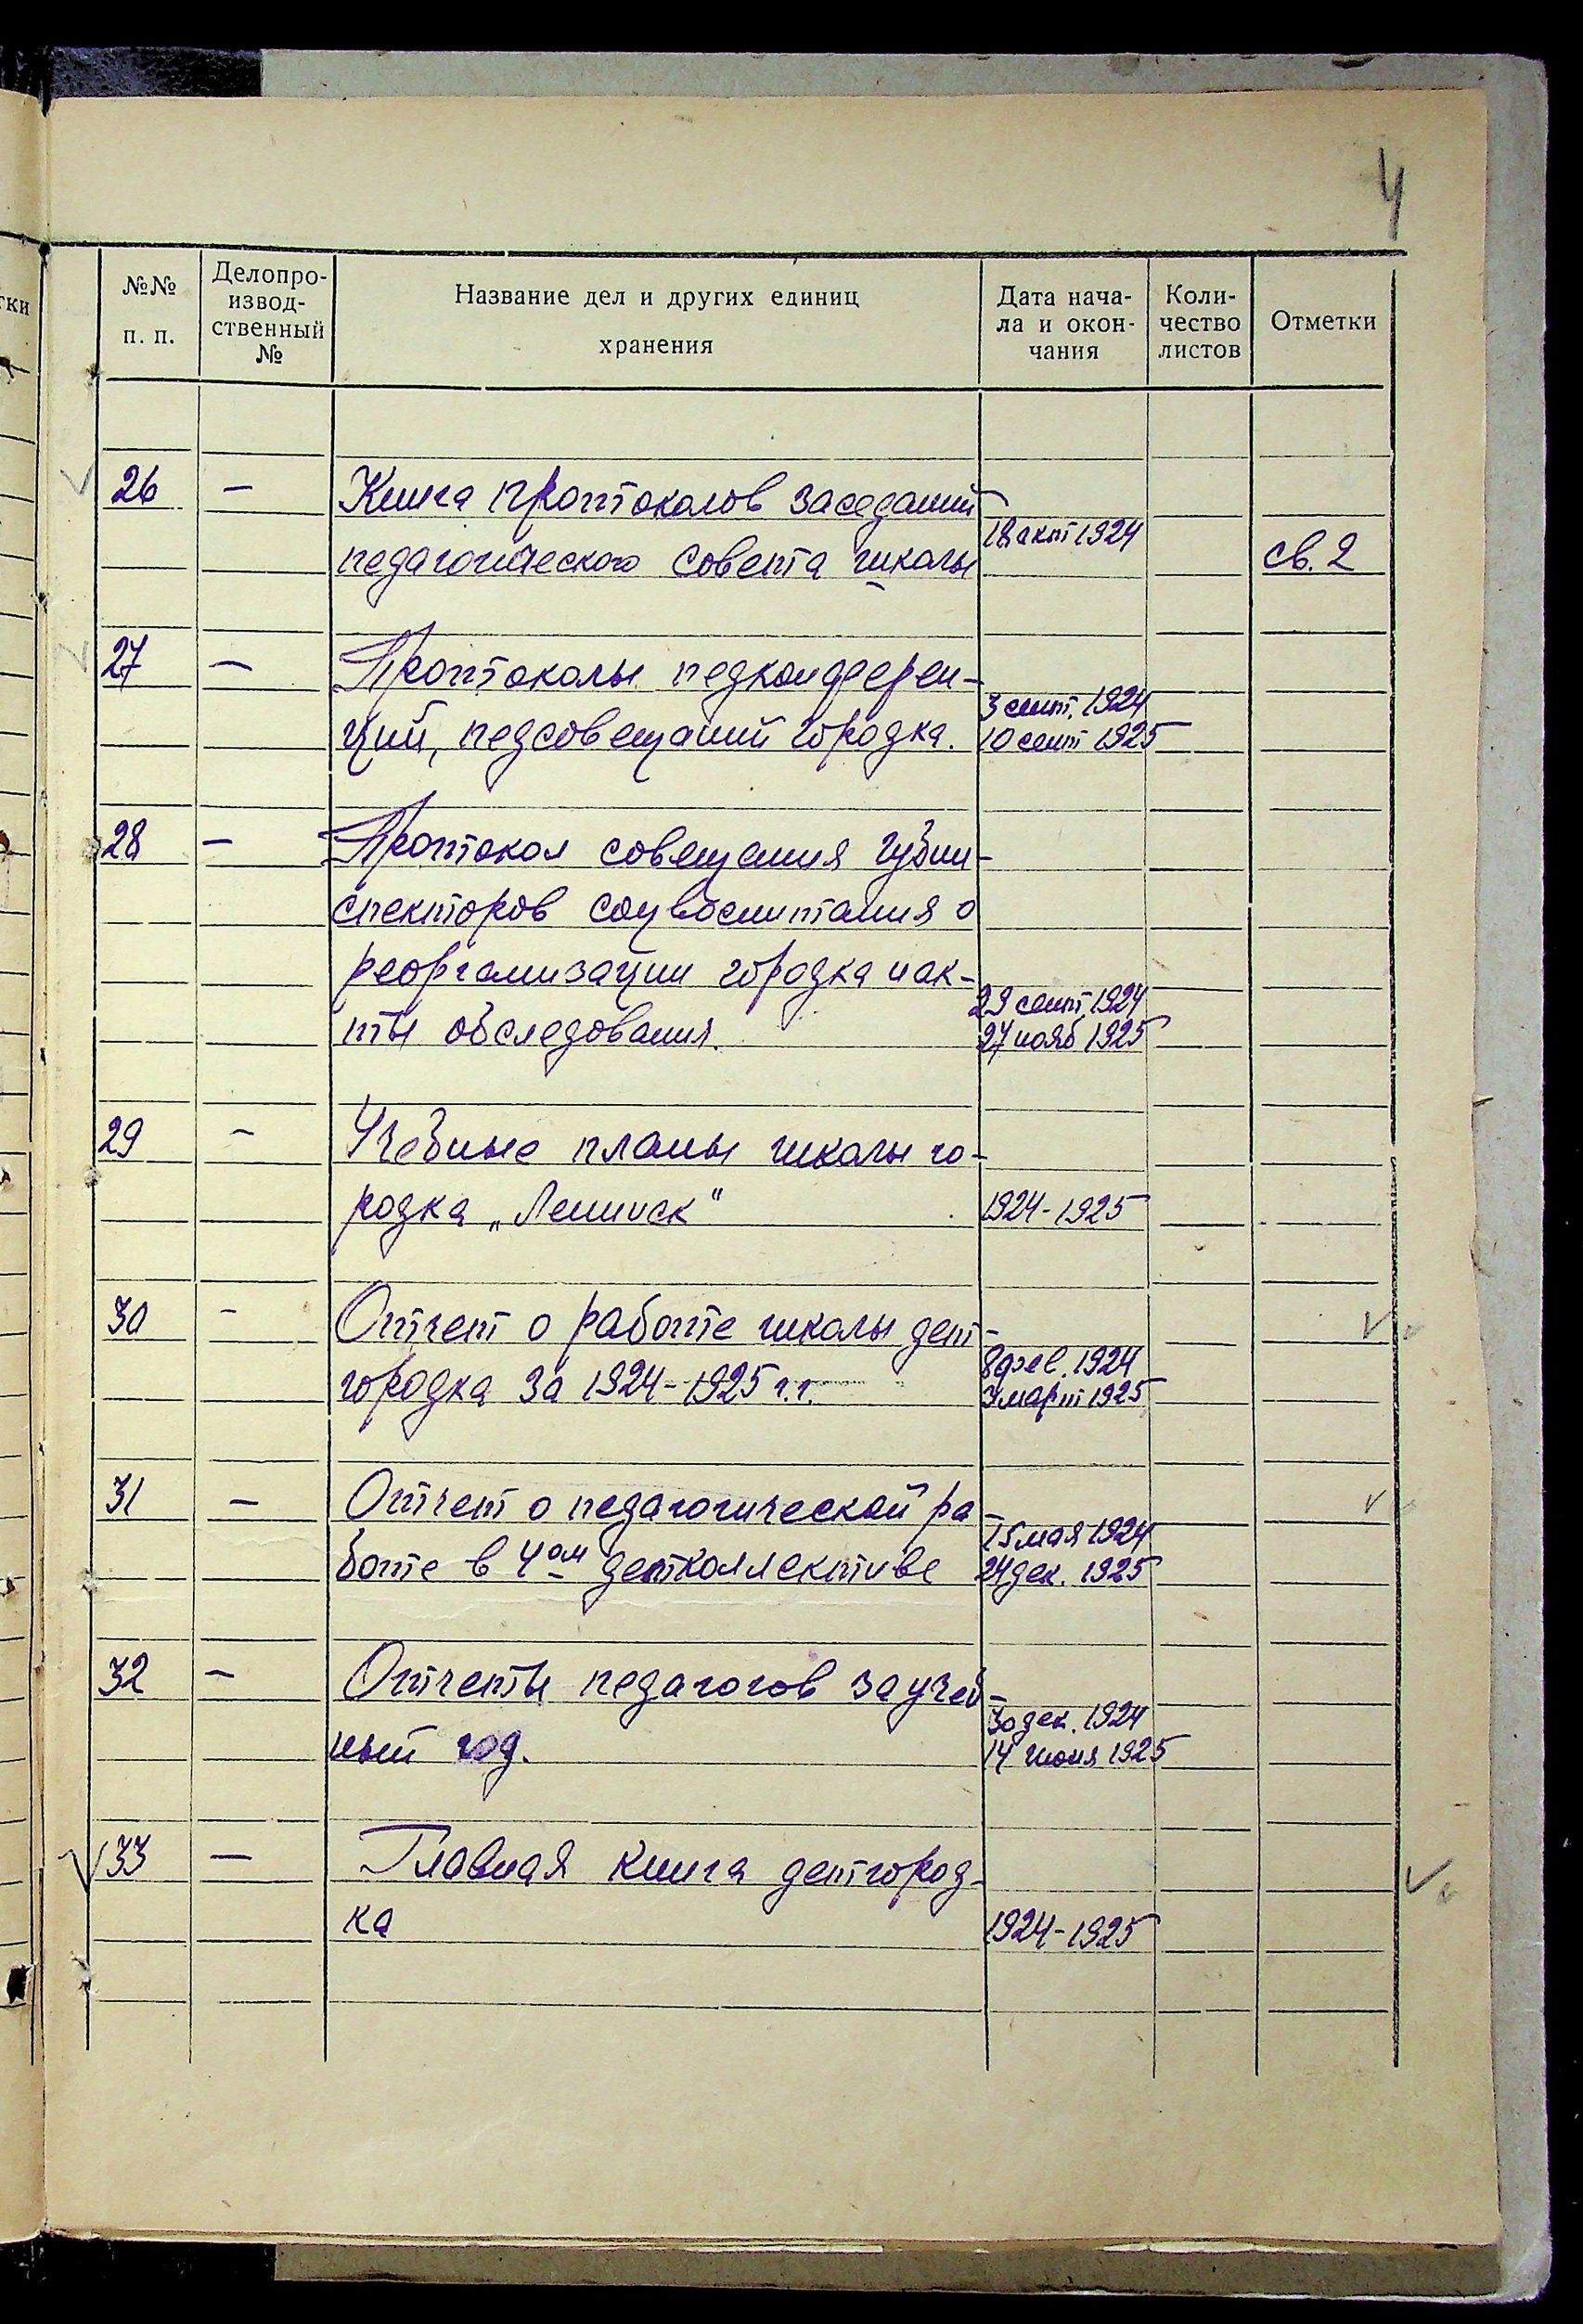 4
№№ п. п.
Делопро-
извод-
ственный
№
Название дел и других единиц
хранения
Дата нача-
ла и окон-
чания
Коли-
чество
листов
Отметки
26 — Книга протоколов заседаний
18 окт 1924
педагогического совета школы
св. 2
27 — Протоколы педконферен-
3 сент. 1924
ций, педсовещаний городка. 10 сент 1925
28 — Протокол совещания губин-
спекторов соцвоспитания о
реорганизации городка и ак-
29 сент. 1924
ты обследования. 27 нояб 1925
29 - Учебные планы школы го-
родка „Ленинск" 1924-1925
30 - Отчет о работе школы дет-
8 фев. 1924
городка за 1924-1925 г.г. март 1925
31 — Отчет о педагогической ра
15 мая 1924
боте в 4ом детколлективе 24 дек. 1925
32 — Отчеты педагогов за учеб-
30 дек. 1924
ный год. 14 июня 1925
33 — Главная книга детгород-
ка 1924-1925